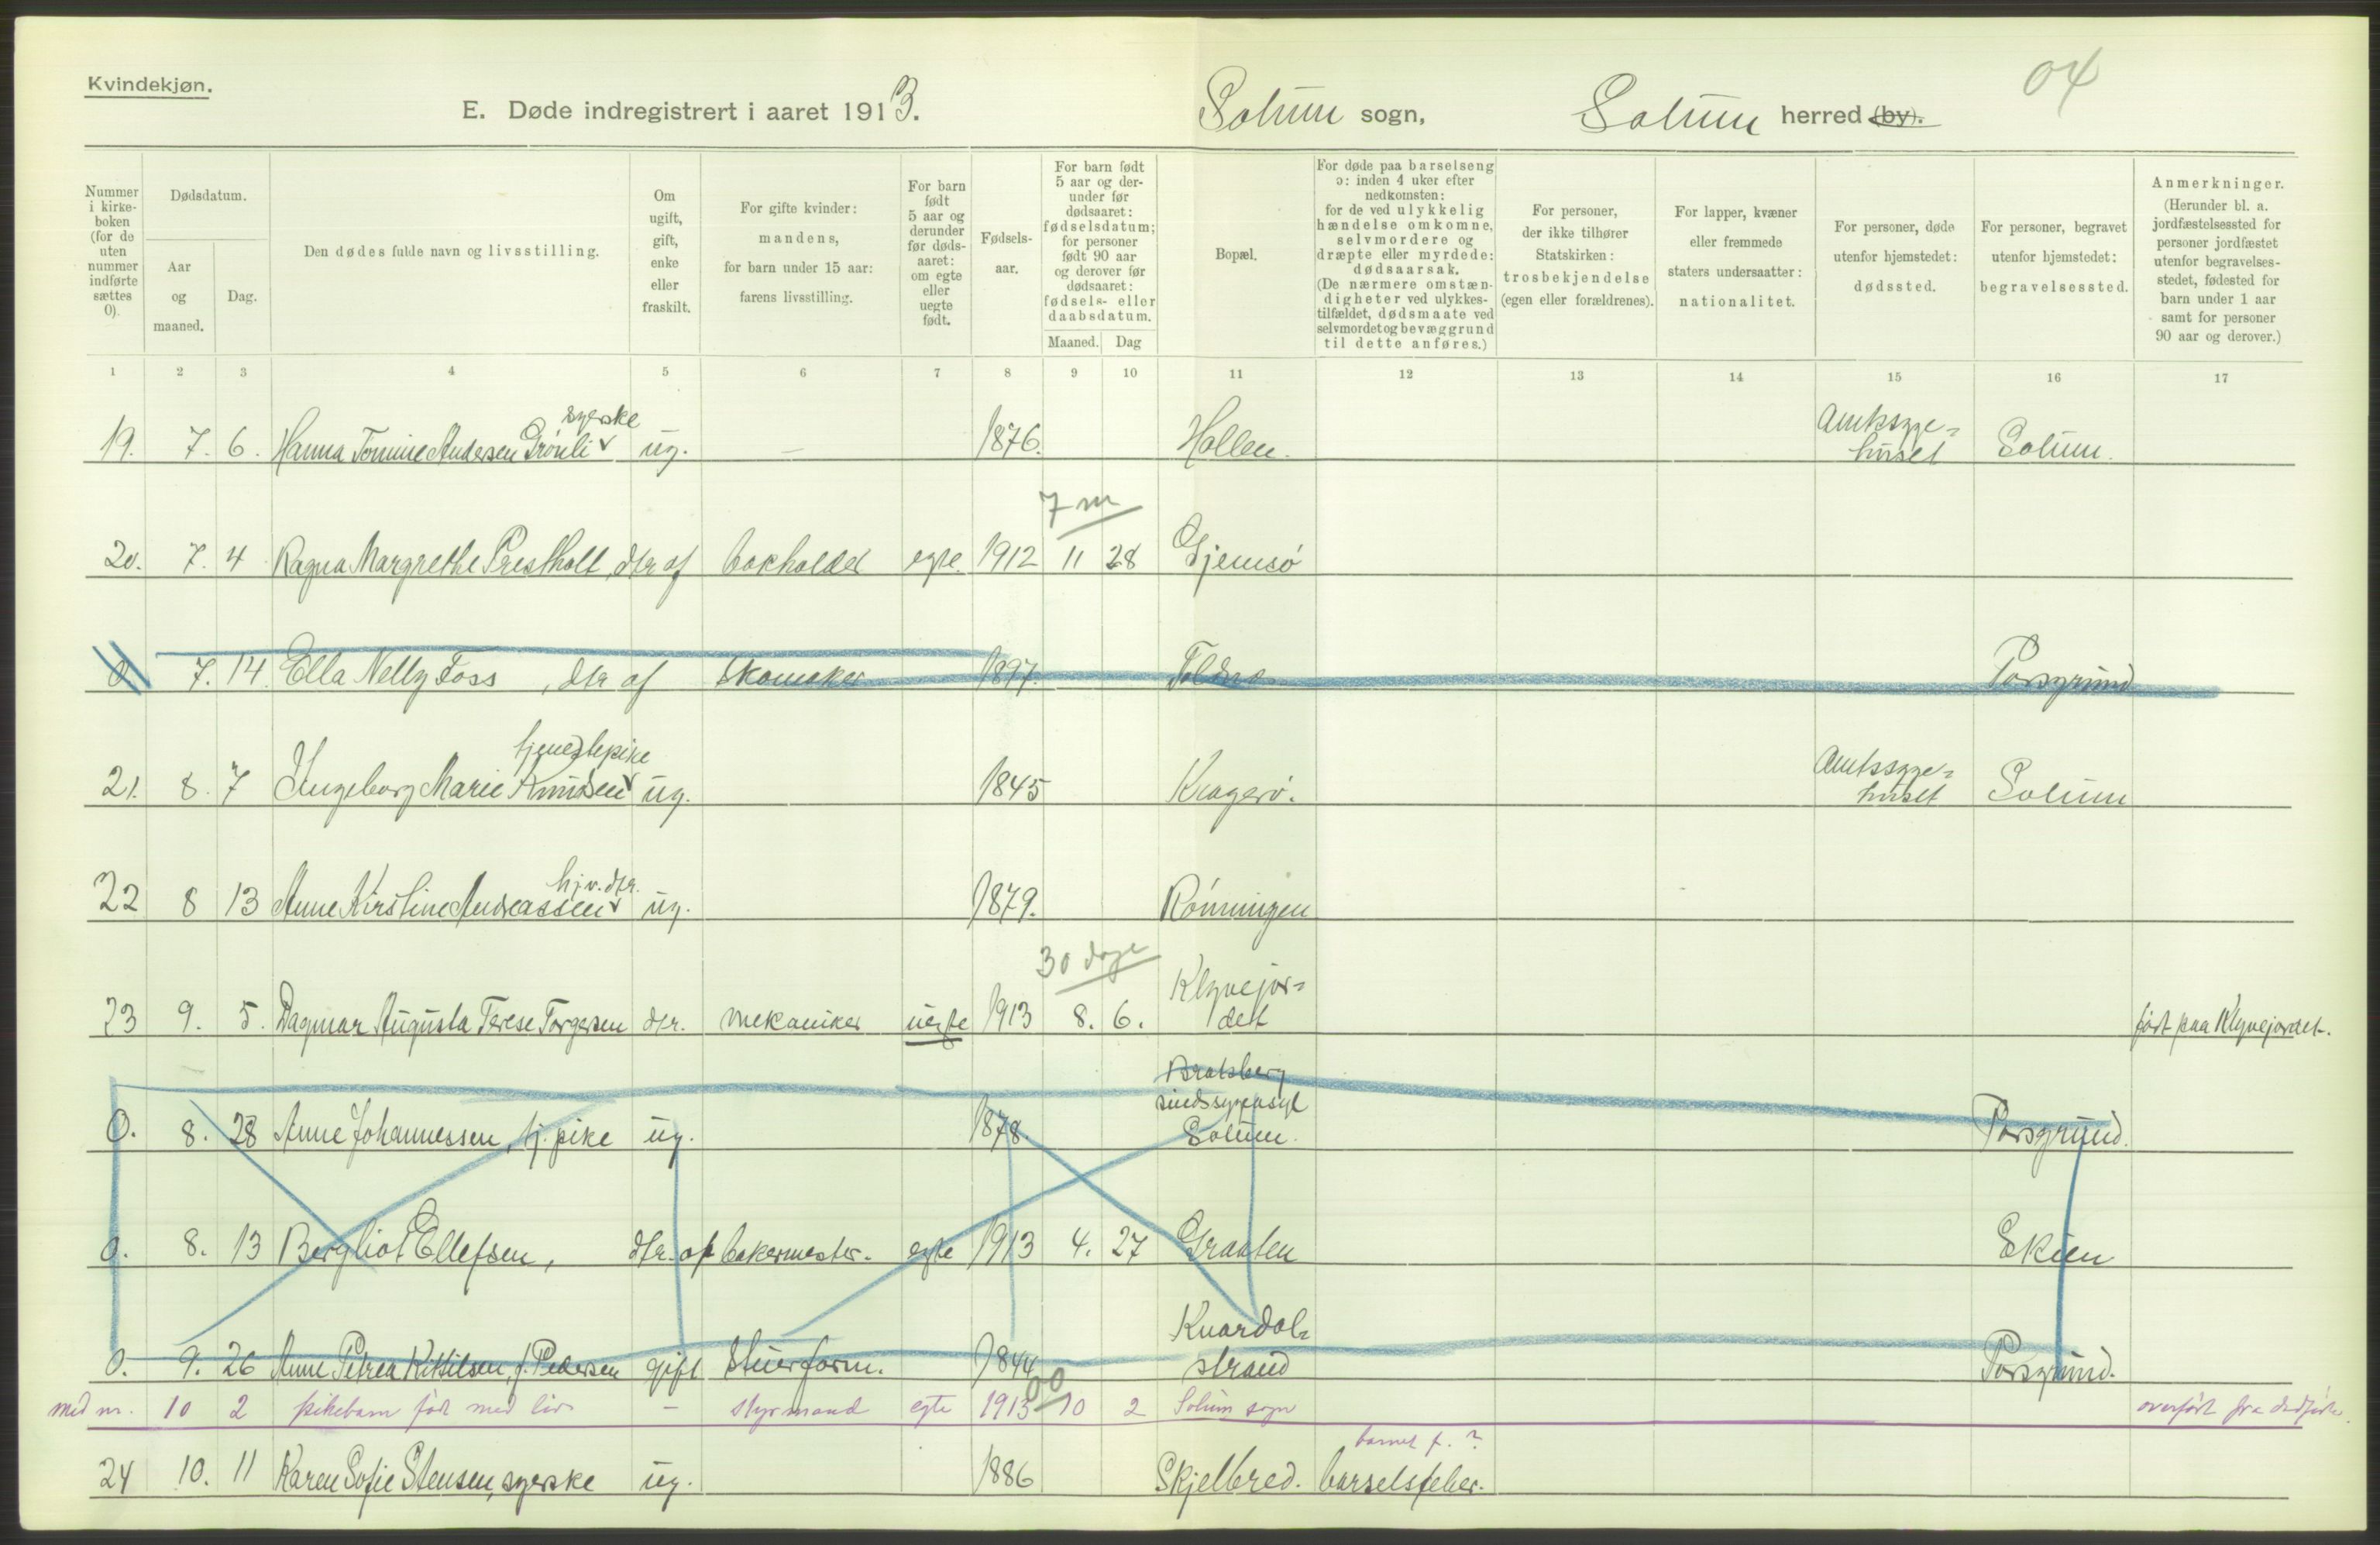 Kvindekjøn.
04
E. Døde indregistrert i aaret 1913. Solum sogn, Solum herred (by).
Nummer i kirke- boken (for de uten nummer indførte sættes 0).
Dødsdatum.
Aar og maaned.
Dag.
Den dødes fulde navn og livsstilling.
Om ugift, gift, enke eller fraskilt.
For gifte kvinder: mandens, for barn under 15 aar: farens livsstilling.
For barn født 5 aar og derunder før døds- aaret: om egte eller uegte født.
Fødsels- aar.
For barn født 5 aar og der- under før dødsaaret: fødselsdatum; for personer født 90 aar og derover før dødsaaret: fødsels- eller daabsdatum.
Maaned. Dag
Bopæl.
For døde paa barselseng ɔ: inden 4 uker efter nedkomsten: for de ved ulykkelig hændelse omkomne, selvmordere og dræpte eller myrdede: dødsaarsak. (De nærmere omstæn- digheter ved ulykkes- tilfældet, dødsmaate ved selvmordet og bevæggrund til dette anføres.)
For personer, der ikke tilhører Statskirken: trosbekjendelse (egen eller forældrenes).
For lapper, kvæner eller fremmede staters undersaatter: nationalitet.
For personer, døde utenfor hjemstedet: dødssted.
For personer, begravet utenfor hjemstedet: begravelsessted.
Anmerkninger. (Herunder bl. a. jordfæstelsessted for personer jordfæstet utenfor begravelses- stedet, fødested for barn under 1 aar samt for personer 90 aar og derover.)
1 2 3 4 5 6 7 8 9 10 11 12 13 14 15 16 17
syerske
Amtssyge=
19. 7. 6. Hanna Tomine Andersen Grönli ug. — 1876. Hollen. huset Solum.
7 m
20. 7. 4 Ragna Margrethe Prestholt, dtr af bokholder egte. 1912 11 28 Gjemsö
0. 7. 14. Ella Nelly Foss, dtr af skomaker 1897. Porsgrund
tjenestepike
Amtssyge=
21. 8. 7 Ingeborg Marie Knudsen ug. 1845 Kragerö. huset Solum
hjv. dtr.
22 8 13 Anne Kirstine Andreassen ug. 1879. Rönningen
30 dage
Klyvejor=
23 9. 5. Dagmar Augusta Terese Torgersen dtr. mekaniker uegte 1913 8. 6. det født paa Klyvejordet.
Bratsberg
sindssygeasyl
0. 8. 28 Anne Johannessen, tj. pike ug. 1878. Solum. Porsgrund.
0. 8. 13 Bergliot Ellefsen, dtr. af bakermester. egte 1913 4. 27 Graaten Skien
Knardal=
0. 9. 26 Anne Petrea Kittilsen, f. Pedersen gift Stuerform. 1844 strand Porsgrund.
00
med nr. 10 2 pikebarn født med liv — styrmand egte 1913 10 2 Solum sogn overført fra dødfødte.
barnet f. ?
24 10. 11 Karen Sofie Stensen, syerske ug. 1886 Skjelbred. barselsfeber.